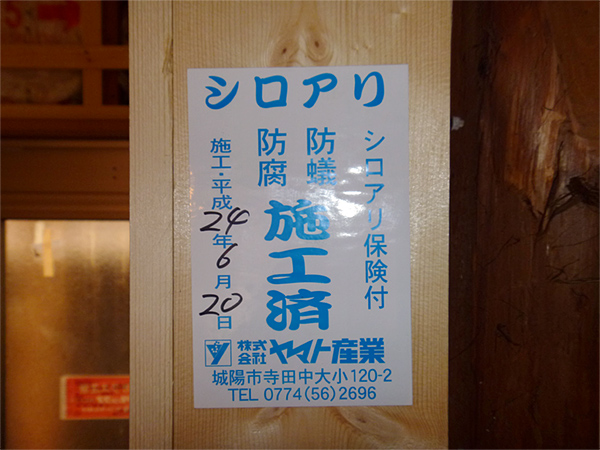 シロアリ
シロアリ保険付
防蟻
防腐
施工済
施工・平成24年6月20日
株式会社ヤマト産業
城陽市寺田中大小120-2
TEL 0774(56)2696